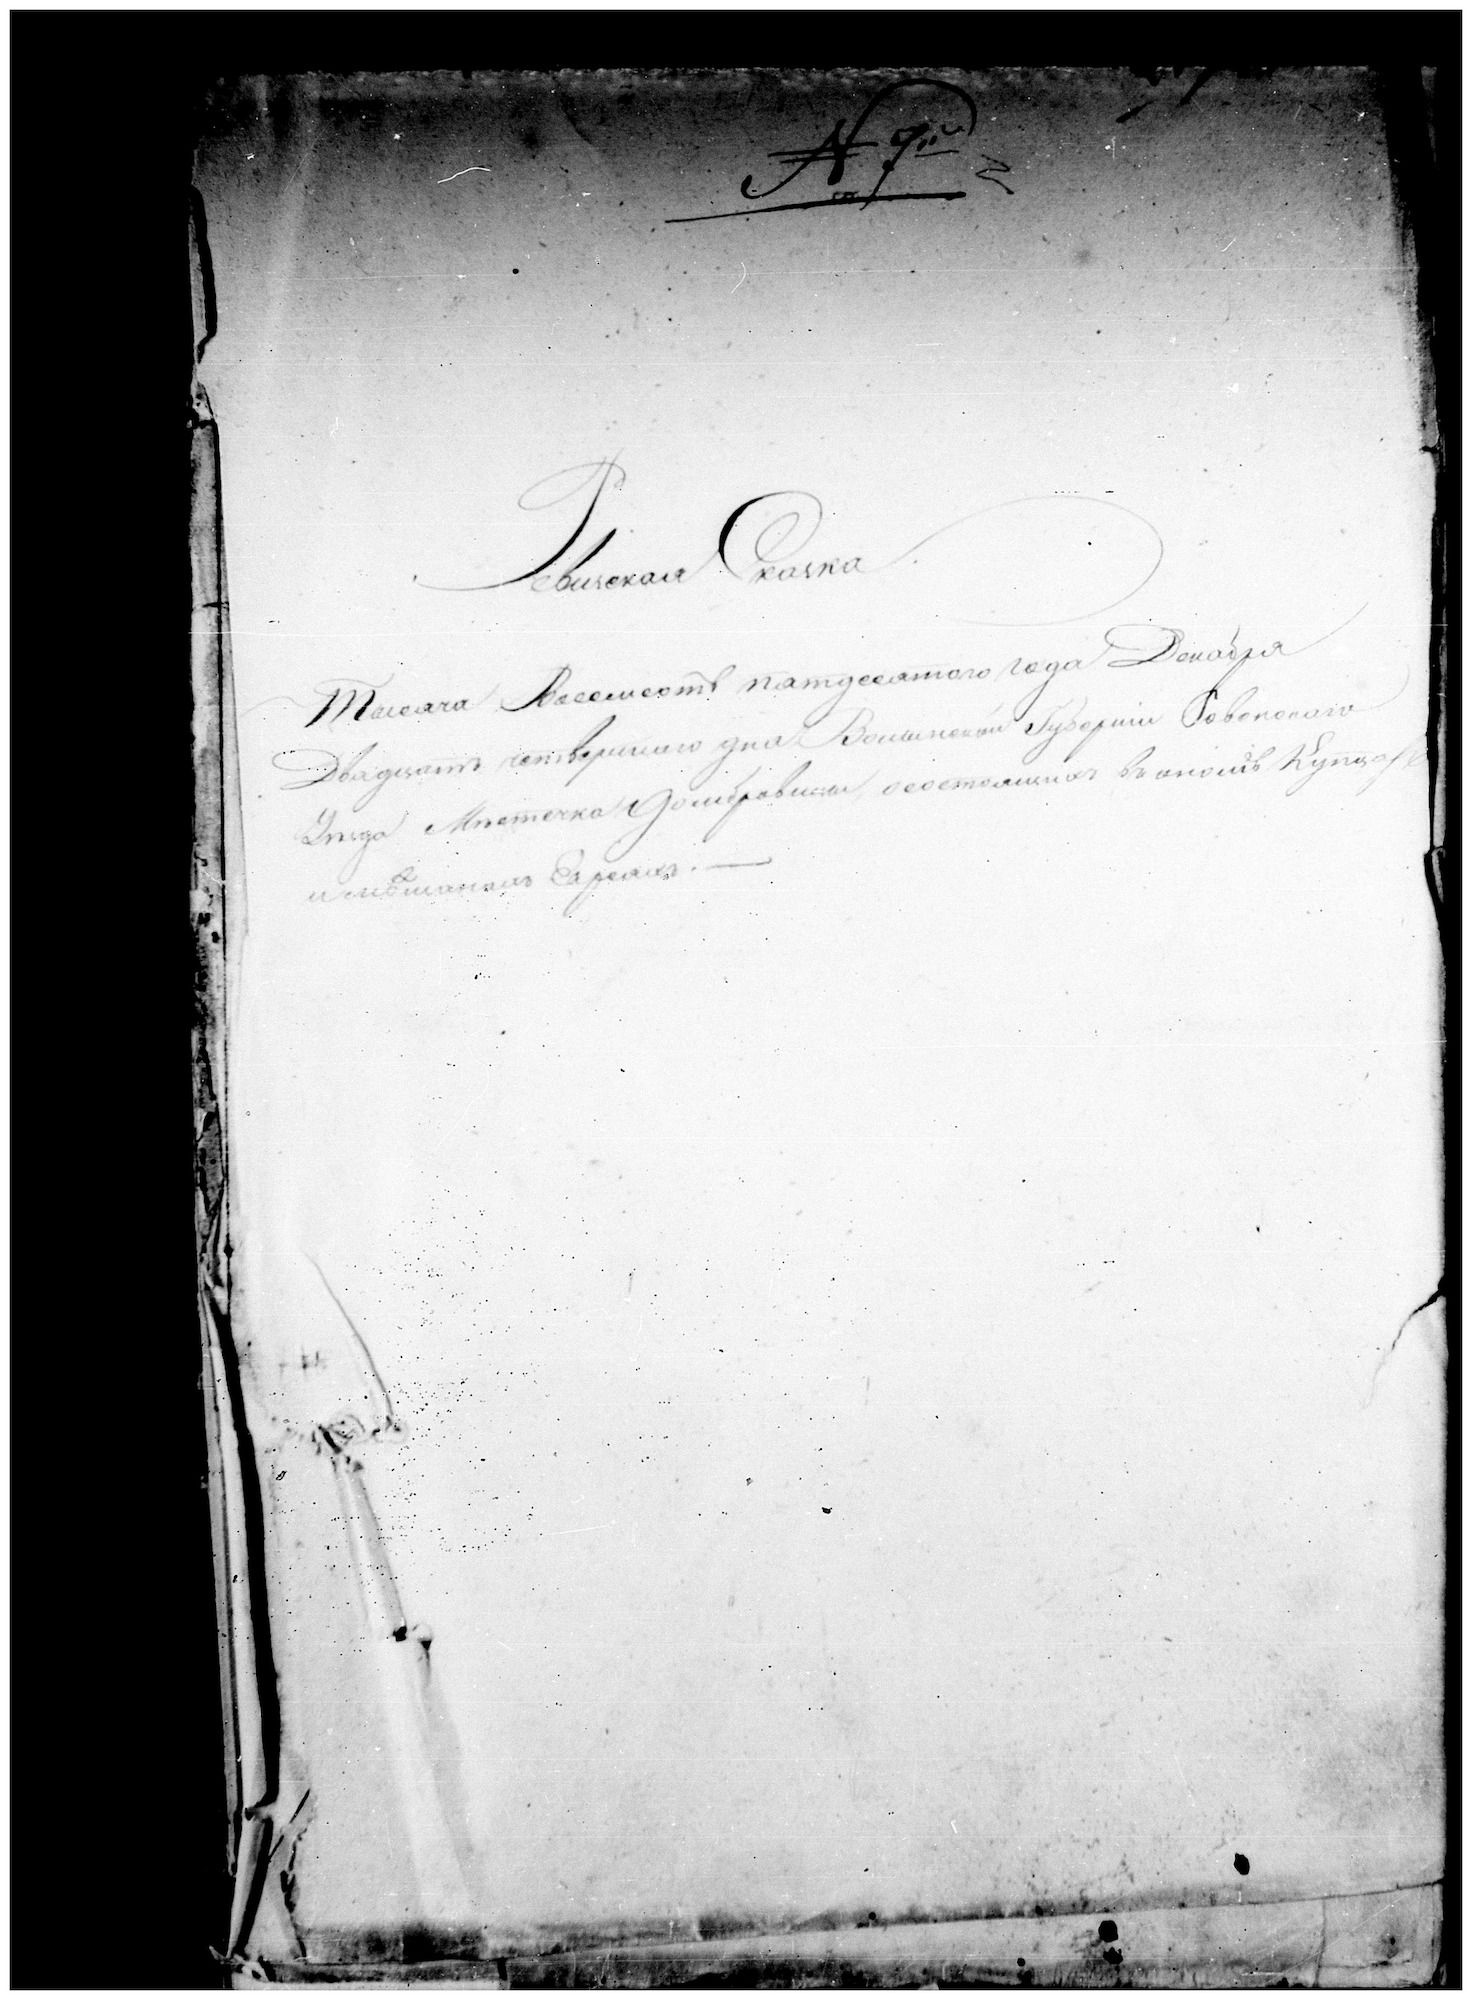 № 7й
Ревизская Сказка
Тысяча Восемсотъ пятдесятого года Декабря
Двадцать четвертого дня Волынской Губерніи Ровенского
Уѣзда Мѣстечка Домбровицы, состоящихъ въ ономъ Купцахъ
и мѣщанахъ Евреяхъ. —